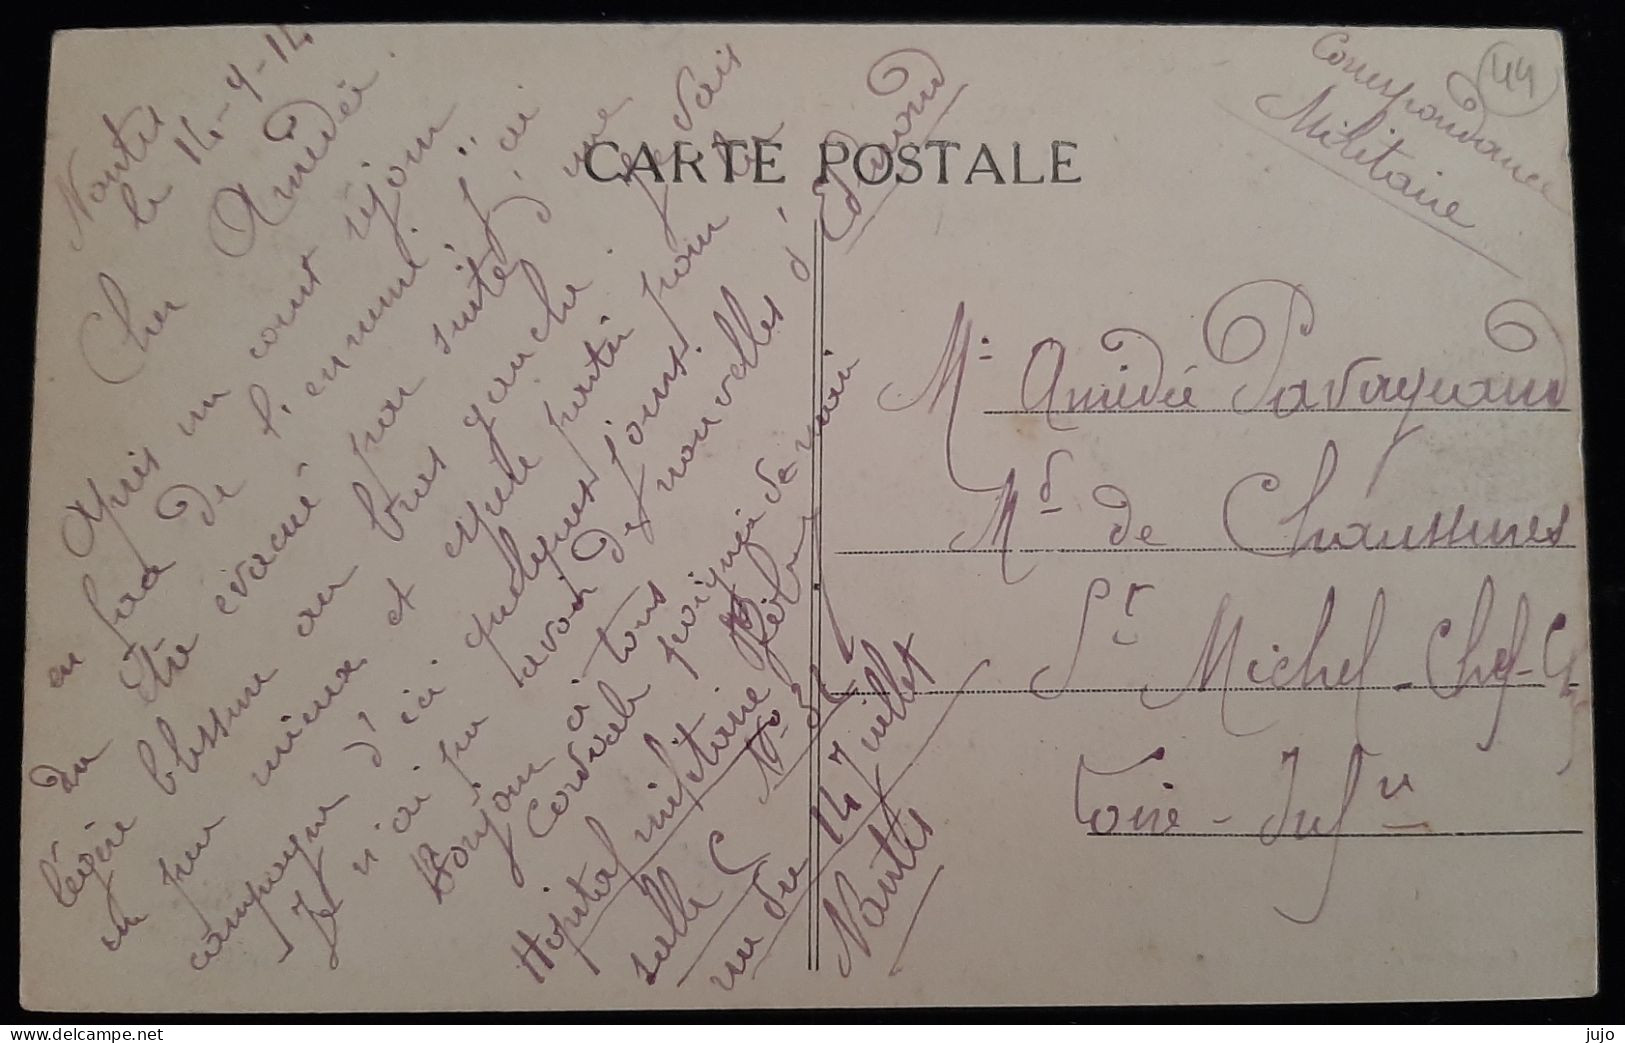 CARTE POSTALE
44
Correspondance
Militaire
Nantes
le 14-9-14
Cher Amédée.
Après un court séjour
en face de l'ennemi j'ai
du être évacué par suite d'une
légère blessure au bras gauche. Je vais
un peu mieux et espère partir pour la
campagne d'ici quelques jours.
Je n'ai pu avoir de nouvelles d'Edmond
Bonjour à tous
Cordiale poignée de main
Hopital militaire No 31
salle C
rue du 14 Juillet
Nantes
Mr Amédée Pavageaud
Md de Chaussures
St Michel-Chef-Chef
Loire-Infre
jujo